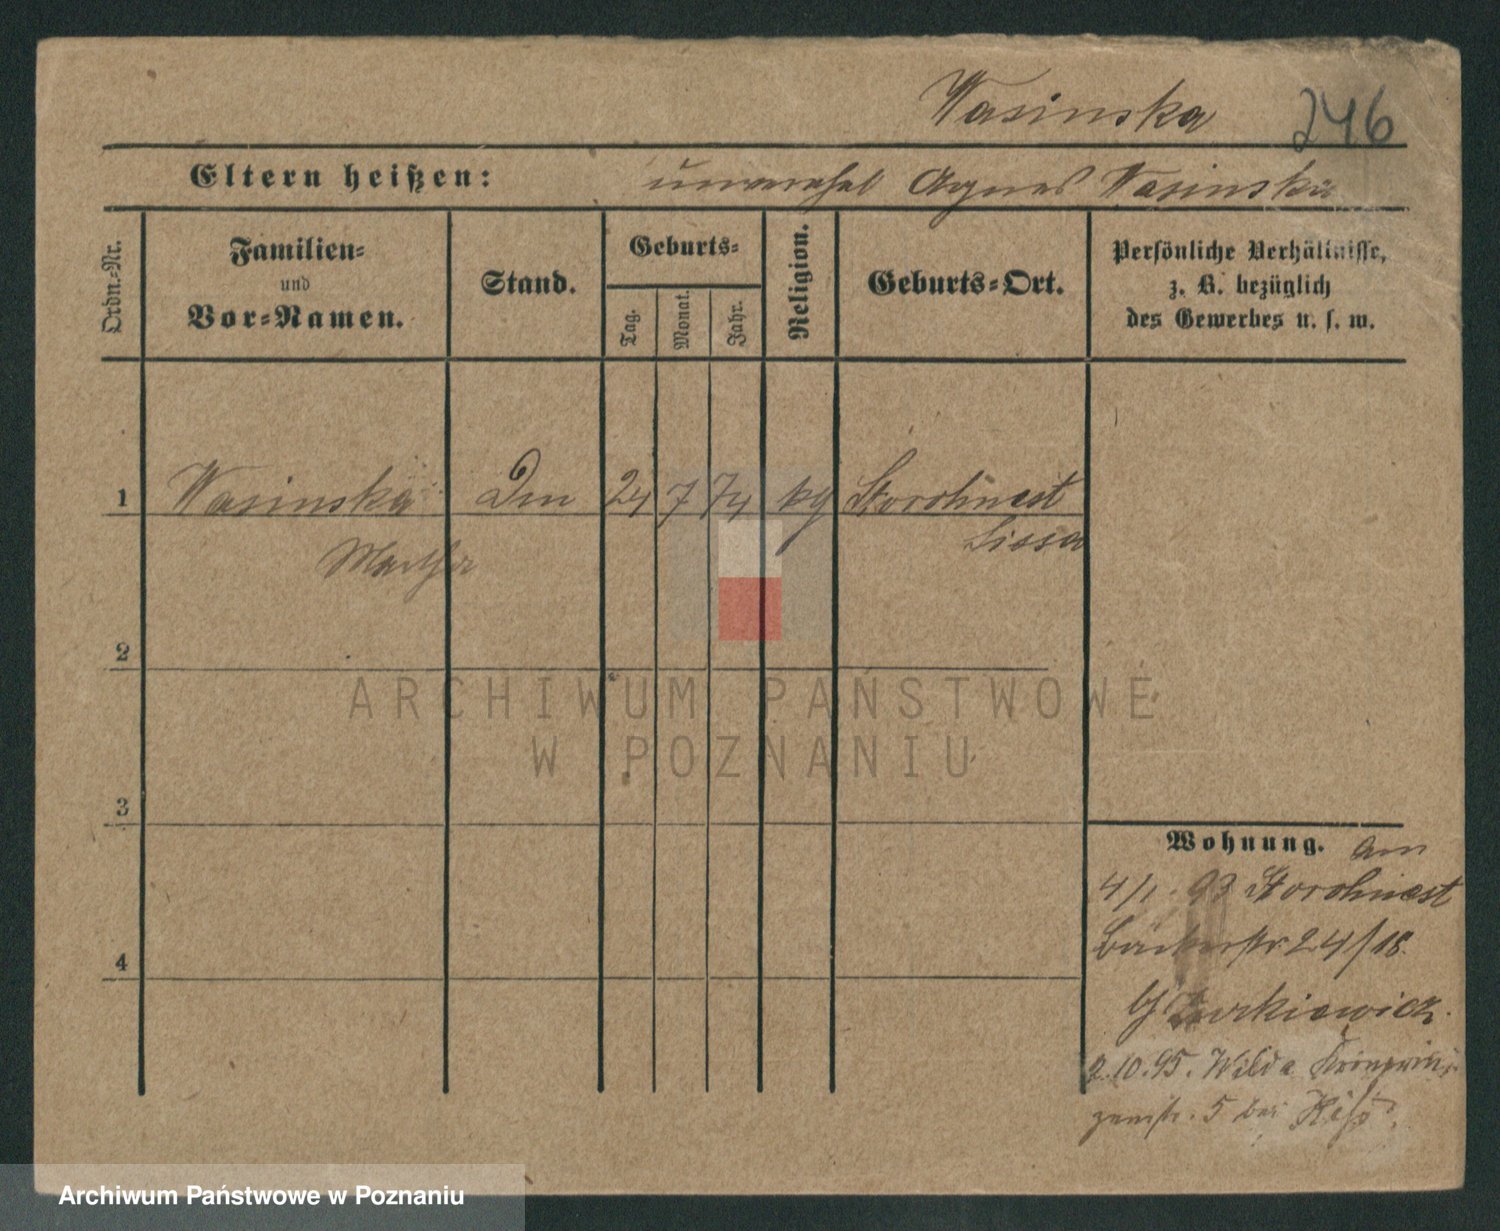 Wasinska 246
Eltern heißen: unverehel Agnes Wasinska
Ordn.-Nr.
Familien-
und
Vor-Namen.
Stand.
Geburts-
Tag.
Monat.
Jahr.
Religion.
Geburts-Ort.
Persönliche Verhältnisse,
z. B. bezüglich
des Gewerbes u. s. w.
1 Wasinska 24 7 74 Storchnest
Lissa
Martha
2
ARCHIWUM PAŃSTWOWE
W POZNANIU
3
Wohnung. am
4/1. 93 Storchnest
Bäckerstr 24/18.
2.10.95. Wilda Kronprin-
zenstr. 5 bei
4
Archiwum Państwowe w Poznaniu